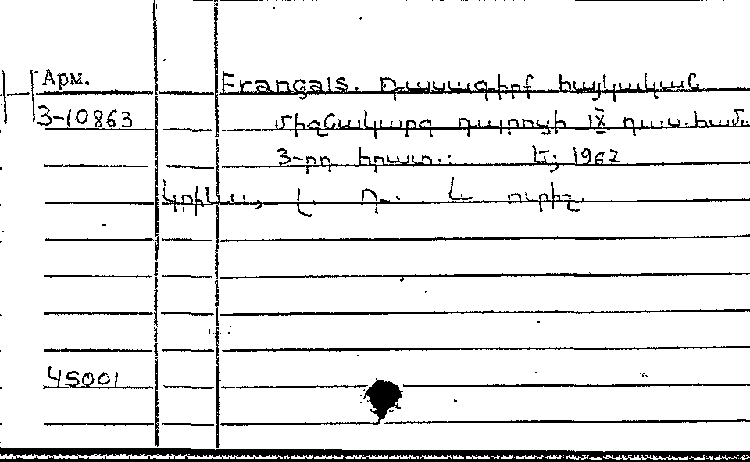 Арм.
Français. Դասագիրք հայկական
3-10863
միջնակարգ դպրոցի IX դաս. համ.
3-րդ հրատ.: Ե; 1962
Լ. Դ. և ուրիշ.
45001